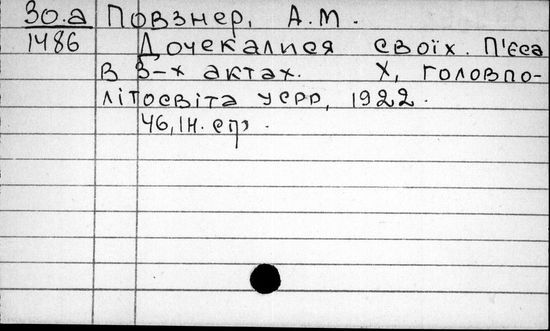 30.a Повзнер, А.М.
1486 Дочекалися своїх. П'єса
в 3-х актах. Х, головпо-
літосвіта УСРР, 1922.
46, ІН. стр.